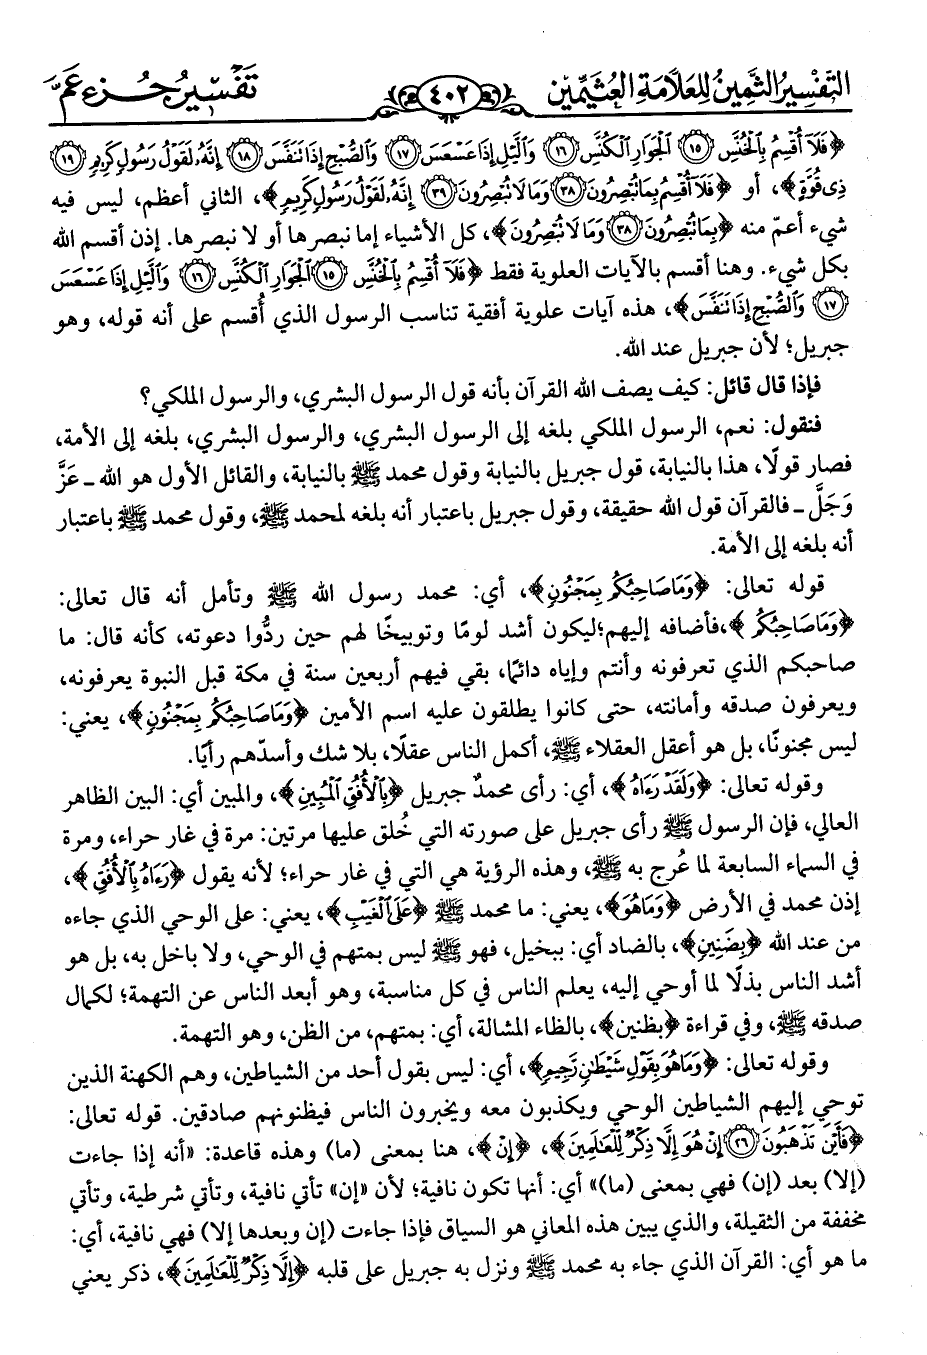 التفسير الثمين للعلامة العثيمين ٤٠٢ تفسير جزء عمّ
﴿فَلَآ أُقْسِمُ بِٱلْخُنَّسِ ١٥ ٱلْجَوَارِ ٱلْكُنَّسِ ١٦ وَٱلَّيْلِ إِذَا عَسْعَسَ ١٧ وَٱلصُّبْحِ إِذَا تَنَفَّسَ ١٨ إِنَّهُۥ لَقَوْلُ رَسُولٍ كَرِيمٍ ١٩
ذِى قُوَّةٍ﴾، أو ﴿فَلَآ أُقْسِمُ بِمَا تُبْصِرُونَ ٣٨ وَمَا لَا تُبْصِرُونَ ٣٩ إِنَّهُۥ لَقَوْلُ رَسُولٍ كَرِيمٍ﴾، الثاني أعظم، ليس فيه
شيء أعمّ منه ﴿بِمَا تُبْصِرُونَ ٣٨ وَمَا لَا تُبْصِرُونَ﴾، كل الأشياء إما نبصرها أو لا نبصرها. إذن أقسم الله
بكل شيء. وهنا أقسم بالآيات العلوية فقط ﴿فَلَآ أُقْسِمُ بِٱلْخُنَّسِ ١٥ ٱلْجَوَارِ ٱلْكُنَّسِ ١٦ وَٱلَّيْلِ إِذَا عَسْعَسَ
١٧ وَٱلصُّبْحِ إِذَا تَنَفَّسَ﴾، هذه آيات علوية أفقية تناسب الرسول الذي أُقسم على أنه قوله، وهو
جبريل؛ لأن جبريل عند الله.
فإذا قال قائل: كيف يصف الله القرآن بأنه قول الرسول البشري، والرسول الملكي؟
فنقول: نعم، الرسول الملكي بلغه إلى الرسول البشري، والرسول البشري، بلغه إلى الأمة،
فصار قولًا، هذا بالنيابة، قول جبريل بالنيابة وقول محمد ﷺ بالنيابة، والقائل الأول هو الله ـ عَزَّ
وَجَلَّ ـ فالقرآن قول الله حقيقة، وقول جبريل باعتبار أنه بلغه لمحمد ﷺ، وقول محمد ﷺ باعتبار
أنه بلغه إلى الأمة.
قوله تعالى: ﴿وَمَا صَاحِبُكُم بِمَجْنُونٍ﴾، أي: محمد رسول الله ﷺ وتأمل أنه قال تعالى:
﴿وَمَا صَاحِبُكُم﴾،فأضافه إليهم؛ليكون أشد لومًا وتوبيخًا لهم حين ردُّوا دعوته، كأنه قال: ما
صاحبكم الذي تعرفونه وأنتم وإياه دائمًا، بقي فيهم أربعين سنة في مكة قبل النبوة يعرفونه،
ويعرفون صدقه وأمانته، حتى كانوا يطلقون عليه اسم الأمين ﴿وَمَا صَاحِبُكُم بِمَجْنُونٍ﴾، يعني:
ليس مجنونًا، بل هو أعقل العقلاء ﷺ، أكمل الناس عقلًا، بلا شك وأسدّهم رأيًا.
وقوله تعالى: ﴿وَلَقَدْ رَءَاهُ﴾، أي: رأى محمدٌ جبريل ﴿بِٱلْأُفُقِ ٱلْمُبِينِ﴾، والمبين أي: البين الظاهر
العالي، فإن الرسول ﷺ رأى جبريل على صورته التي خُلق عليها مرتين: مرة في غار حراء، ومرة
في السماء السابعة لما عُرج به ﷺ، وهذه الرؤية هي التي في غار حراء؛ لأنه يقول ﴿رَءَاهُ بِٱلْأُفُقِ﴾،
إذن محمد في الأرض ﴿وَمَا هُوَ﴾، يعني: ما محمد ﷺ ﴿عَلَى ٱلْغَيْبِ﴾، يعني: على الوحي الذي جاءه
من عند الله ﴿بِضَنِينٍ﴾، بالضاد أي: ببخيل، فهو ﷺ ليس بمتهم في الوحي، ولا باخل به، بل هو
أشد الناس بذلًا لما أوحي إليه، يعلم الناس في كل مناسبة، وهو أبعد الناس عن التهمة؛ لكمال
صدقه ﷺ، وفي قراءة ﴿بظنين﴾، بالظاء المشالة، أي: بمتهم، من الظن، وهو التهمة.
وقوله تعالى: ﴿وَمَا هُوَ بِقَوْلِ شَيْطَٰنٍ رَّجِيمٍ﴾، أي: ليس بقول أحد من الشياطين، وهم الكهنة الذين
توحي إليهم الشياطين الوحي ويكذبون معه ويخبرون الناس فيظنونهم صادقين. قوله تعالى:
﴿فَأَيْنَ تَذْهَبُونَ ٢٦ إِنْ هُوَ إِلَّا ذِكْرٌ لِّلْعَٰلَمِينَ﴾، ﴿إِنْ﴾، هنا بمعنى (ما) وهذه قاعدة: «أنه إذا جاءت
(إلا) بعد (إن) فهي بمعنى (ما)» أي: أنها تكون نافية؛ لأن «إن» تأتي نافية، وتأتي شرطية، وتأتي
مخففة من الثقيلة، والذي يبين هذه المعاني هو السياق فإذا جاءت (إن وبعدها إلا) فهي نافية، أي:
ما هو أي: القرآن الذي جاء به محمد ﷺ ونزل به جبريل على قلبه ﴿إِلَّا ذِكْرٌ لِّلْعَٰلَمِينَ﴾، ذكر يعني